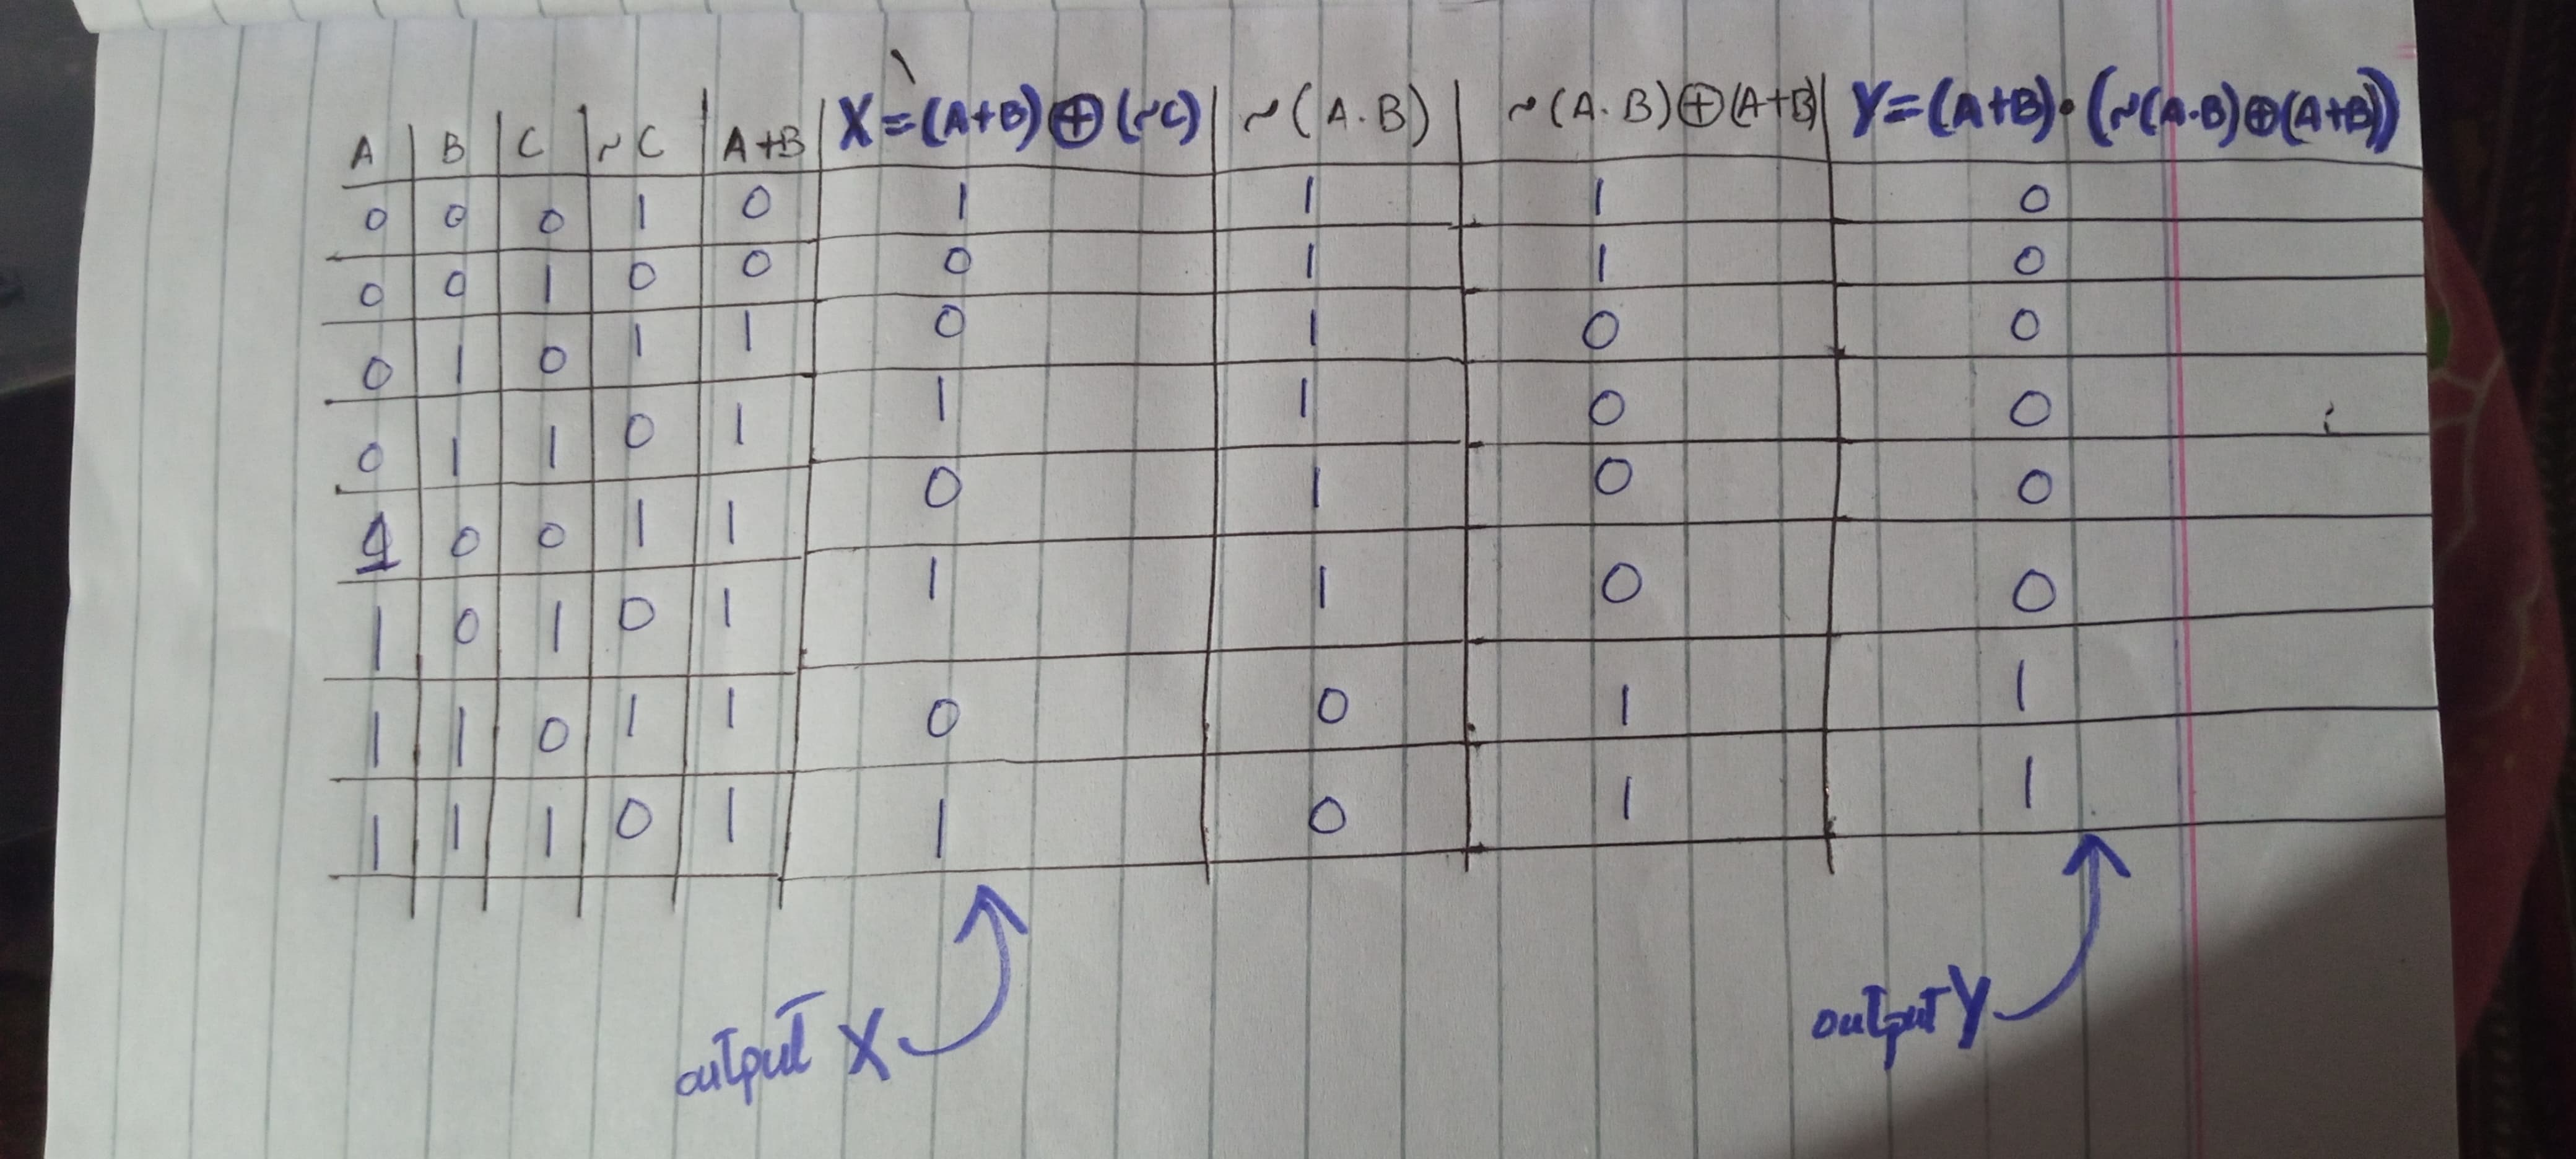 A | B | C | ~C | A+B | X=(A+B)⊕(~C) | ~(A.B) | ~(A.B)⊕(A+B) | Y=(A+B)·(~(A.B)⊕(A+B))
0 0 0 1 0 1 1 1 0
0 0 1 0 0 0 1 1 0
0 1 0 1 1 0 1 0 0
0 1 1 0 1 1 1 0 0
1 0 0 1 1 0 1 0 0
1 0 1 0 1 1 1 0 0
1 1 0 1 1 0 0 1 1
1 1 1 0 1 1 0 1 1
output X
output Y